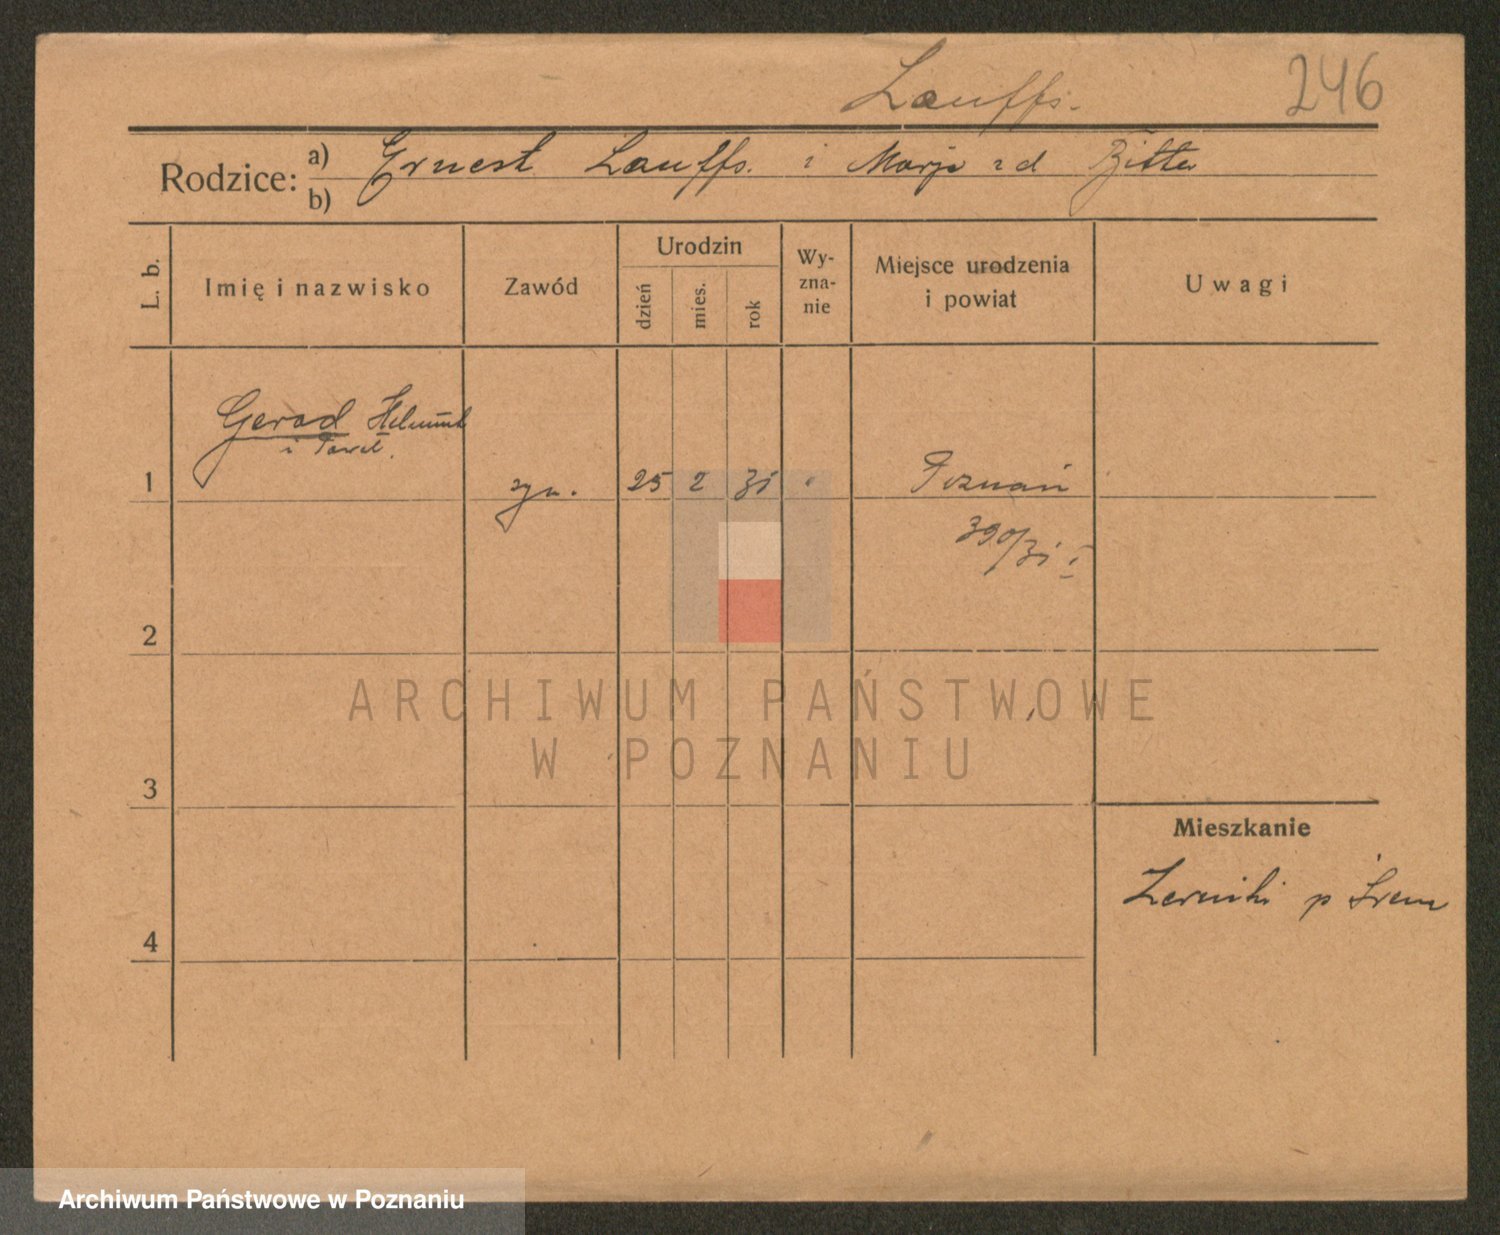 Lauffs.
246
Rodzice: a) Ernest Lauffs. i Marja z d
b)
L. b.
Imię i nazwisko
Zawód
Urodzin
dzień
mies.
rok
Wy-
zna-
nie
Miejsce urodzenia
i powiat
Uwagi
Gerad Helmut
i Paweł.
1 syn. 25 2 31 Poznań
390/31 I
2
ARCHIWUM PAŃSTWOWE
W POZNANIU
3
Mieszkanie
Zerniki p Śrem
4
Archiwum Państwowe w Poznaniu